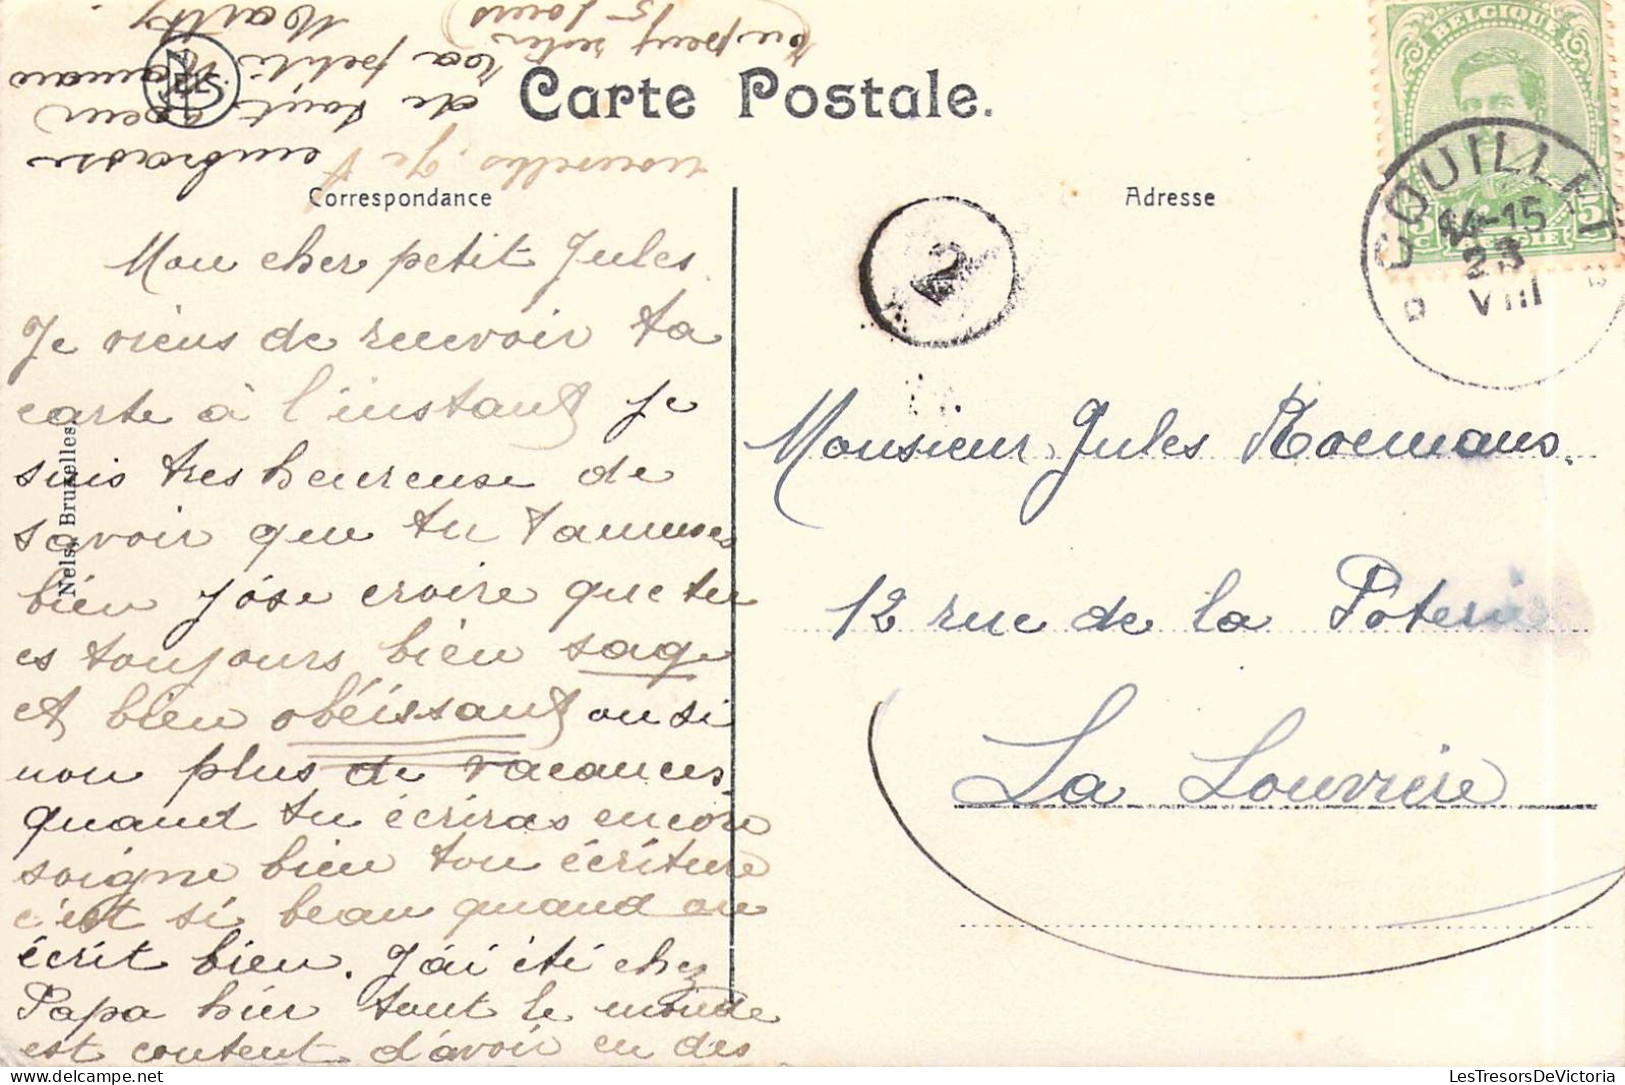 Carte Postale.
Correspondance
Adresse
BELGIQUE
5
5
C
BELGIË
COUILLET
14-15
23
VIII
2
Nels, Bruxelles
Mon cher petit Jules
Je viens de recevoir ta
carte à l'instant je
suis tres heureuse de
savoir que tu t'amuses
bien j'ose croire que tu
es toujours bien sage
et bien obéissant ou si
non plus de vacances.
quand tu écriras encore
soigne bien ton écriture
c'est si beau quand on
écrit bien. J'ai été chez
Papa hier tout le monde
est content d'avoir eu des
nouvelles. Je t'
embrasse
de tout coeur
ta petite Maman
Marthy
tu peux rester
15 jours
Monsieur Jules Roemans.
12 rue de la Poterie
La Louvière
LesTresorsDeVictoria.com